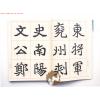 東將軍
兗州刺
史南陽
文公鄭